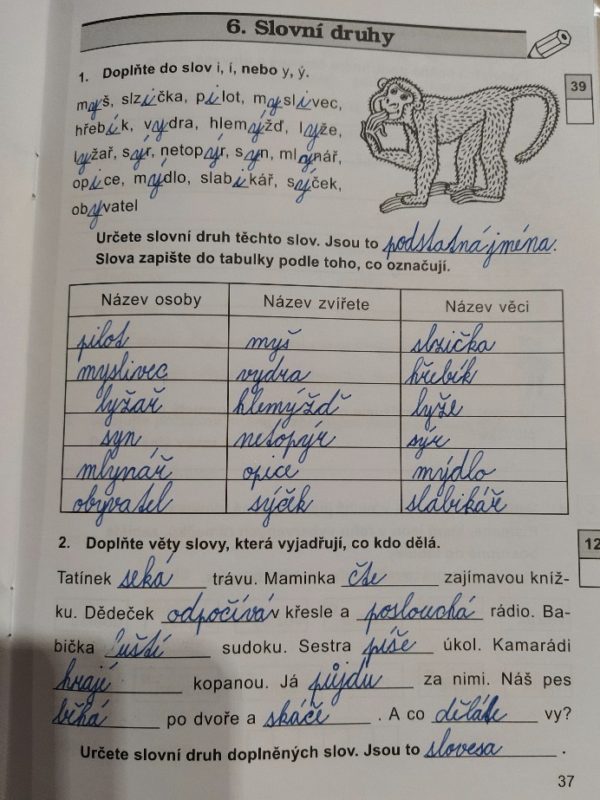 6. Slovní druhy
1. Doplňte do slov i, í, nebo y, ý.
39
myš, slzička, pilot, myslivec,
hřebík, vydra, hlemýžď, lyže,
lyžař, sýr, netopýr, syn, mlynář,
opice, mýdlo, slabikář, sýček,
obyvatel
Určete slovní druh těchto slov. Jsou to podstatná jména.
Slova zapište do tabulky podle toho, co označují.
Název osoby Název zvířete Název věci
pilot myš slzička
myslivec vydra hřebík
lyžař hlemýžď lyže
syn netopýr sýr
mlynář opice mýdlo
obyvatel sýček slabikář
2. Doplňte věty slovy, která vyjadřují, co kdo dělá.
12
Tatínek seká trávu. Maminka čte zajímavou kníž-
ku. Dědeček odpočívá v křesle a poslouchá rádio. Ba-
bička luští sudoku. Sestra píše úkol. Kamarádi
hrají kopanou. Já půjdu za nimi. Náš pes
běhá po dvoře a skáče. A co děláte vy?
Určete slovní druh doplněných slov. Jsou to slovesa.
37